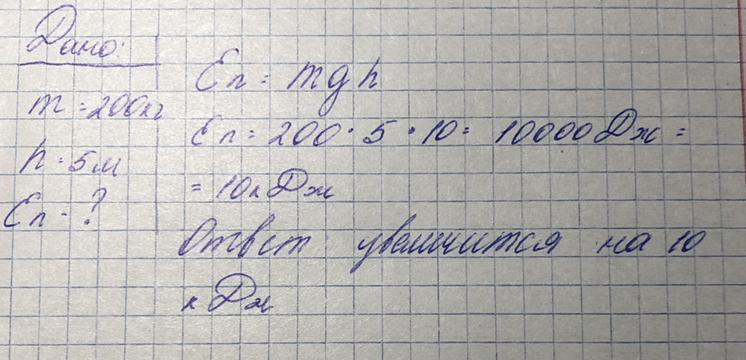 Дано:
m = 200кг
h = 5м
Eп - ?
Eп = mgh
Eп = 200 · 5 · 10 = 10000 Дж =
= 10кДж
Ответ увеличится на 10
кДж